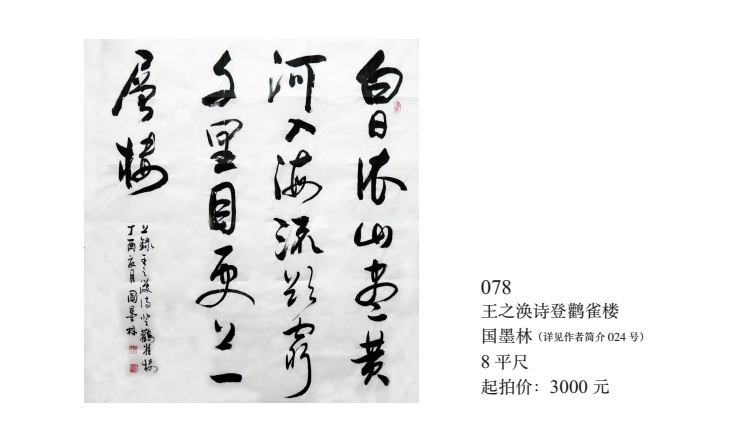 白日依山盡黄
河入海流欲窮
千里目更上一
層樓
上録王之渙詩登鸛雀樓
丁酉亥月國墨林
078
王之涣诗登鹳雀楼
国墨林（详见作者简介 024 号）
8 平尺
起拍价：3000 元